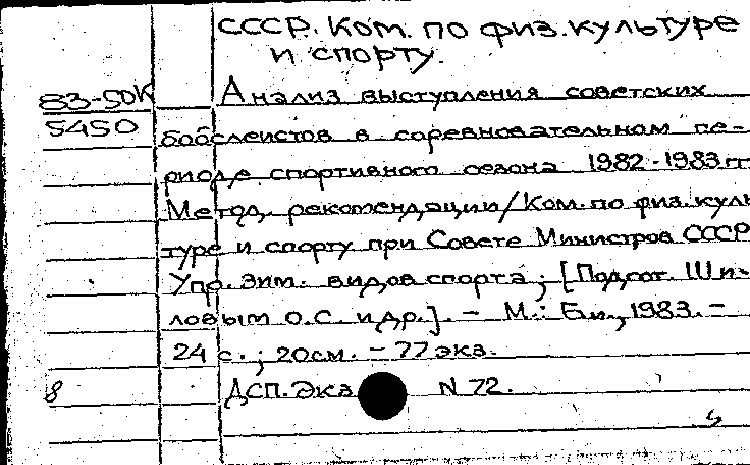 СССР. Ком. по физ. культуре
и спорту.
83-50К
5450
Анализ выступления советских
бобслеистов в соревновательном пе-
риоде спортивного сезона 1982-1983 гг.
Метод. рекомендации/Ком. по физ. куль
туре и спорту при Совете Министров СССР
Упр. зим. видов спорта; [Подгот. Ши-
ловым О.С. и др.]. - М.: Б.и., 1983. -
24 с.; 20см. - 77 экз.
8
ДСП. Экз N 72.